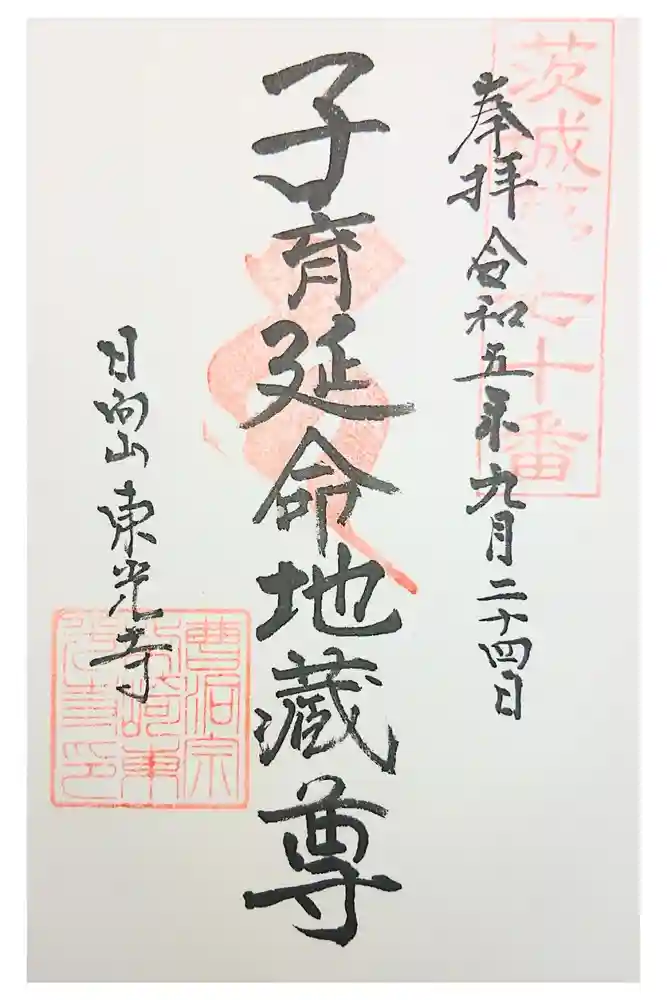 茨城百八 七十番
奉拝 令和五年九月二十四日
子育延命地蔵尊
日向山 東光寺
曹洞宗